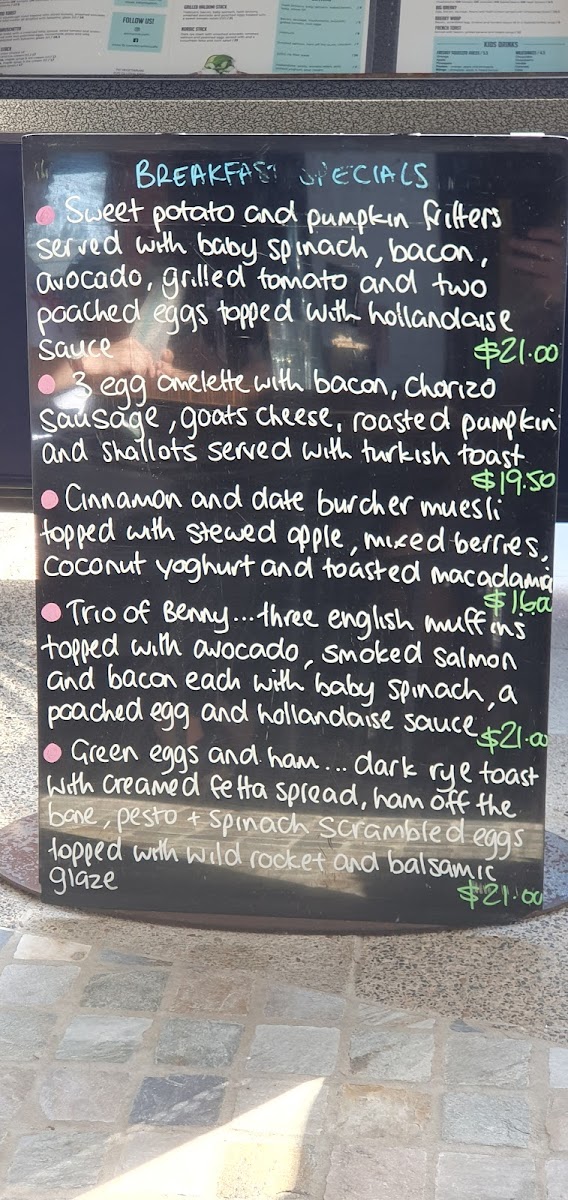 FOLLOW US!
GRILLED HALOUMI STACK
NORDIC STACK
BREAKFAST WRAP
FRENCH TOAST
KIDS DRINKS
BREAKFAST SPECIALS
Sweet potato and pumpkin fritters
served with baby spinach, bacon,
avocado, grilled tomato and two
poached eggs topped with hollandaise
sauce $21.00
3 egg omelette with bacon, chorizo
sausage, goats cheese, roasted pumpkin
and shallots served with turkish toast
$19.50
Cinnamon and date burcher muesli
topped with stewed apple, mixed berries,
coconut yoghurt and toasted macadamia
Trio of Benny...three english muffins
topped with avocado, smoked salmon
and bacon each with baby spinach, a
poached egg and hollandaise sauce
$21.00
Green eggs and ham... dark rye toast
with creamed fetta spread, ham off the
bone, pesto + spinach scrambled eggs
topped with wild rocket and balsamic
glaze $21.00